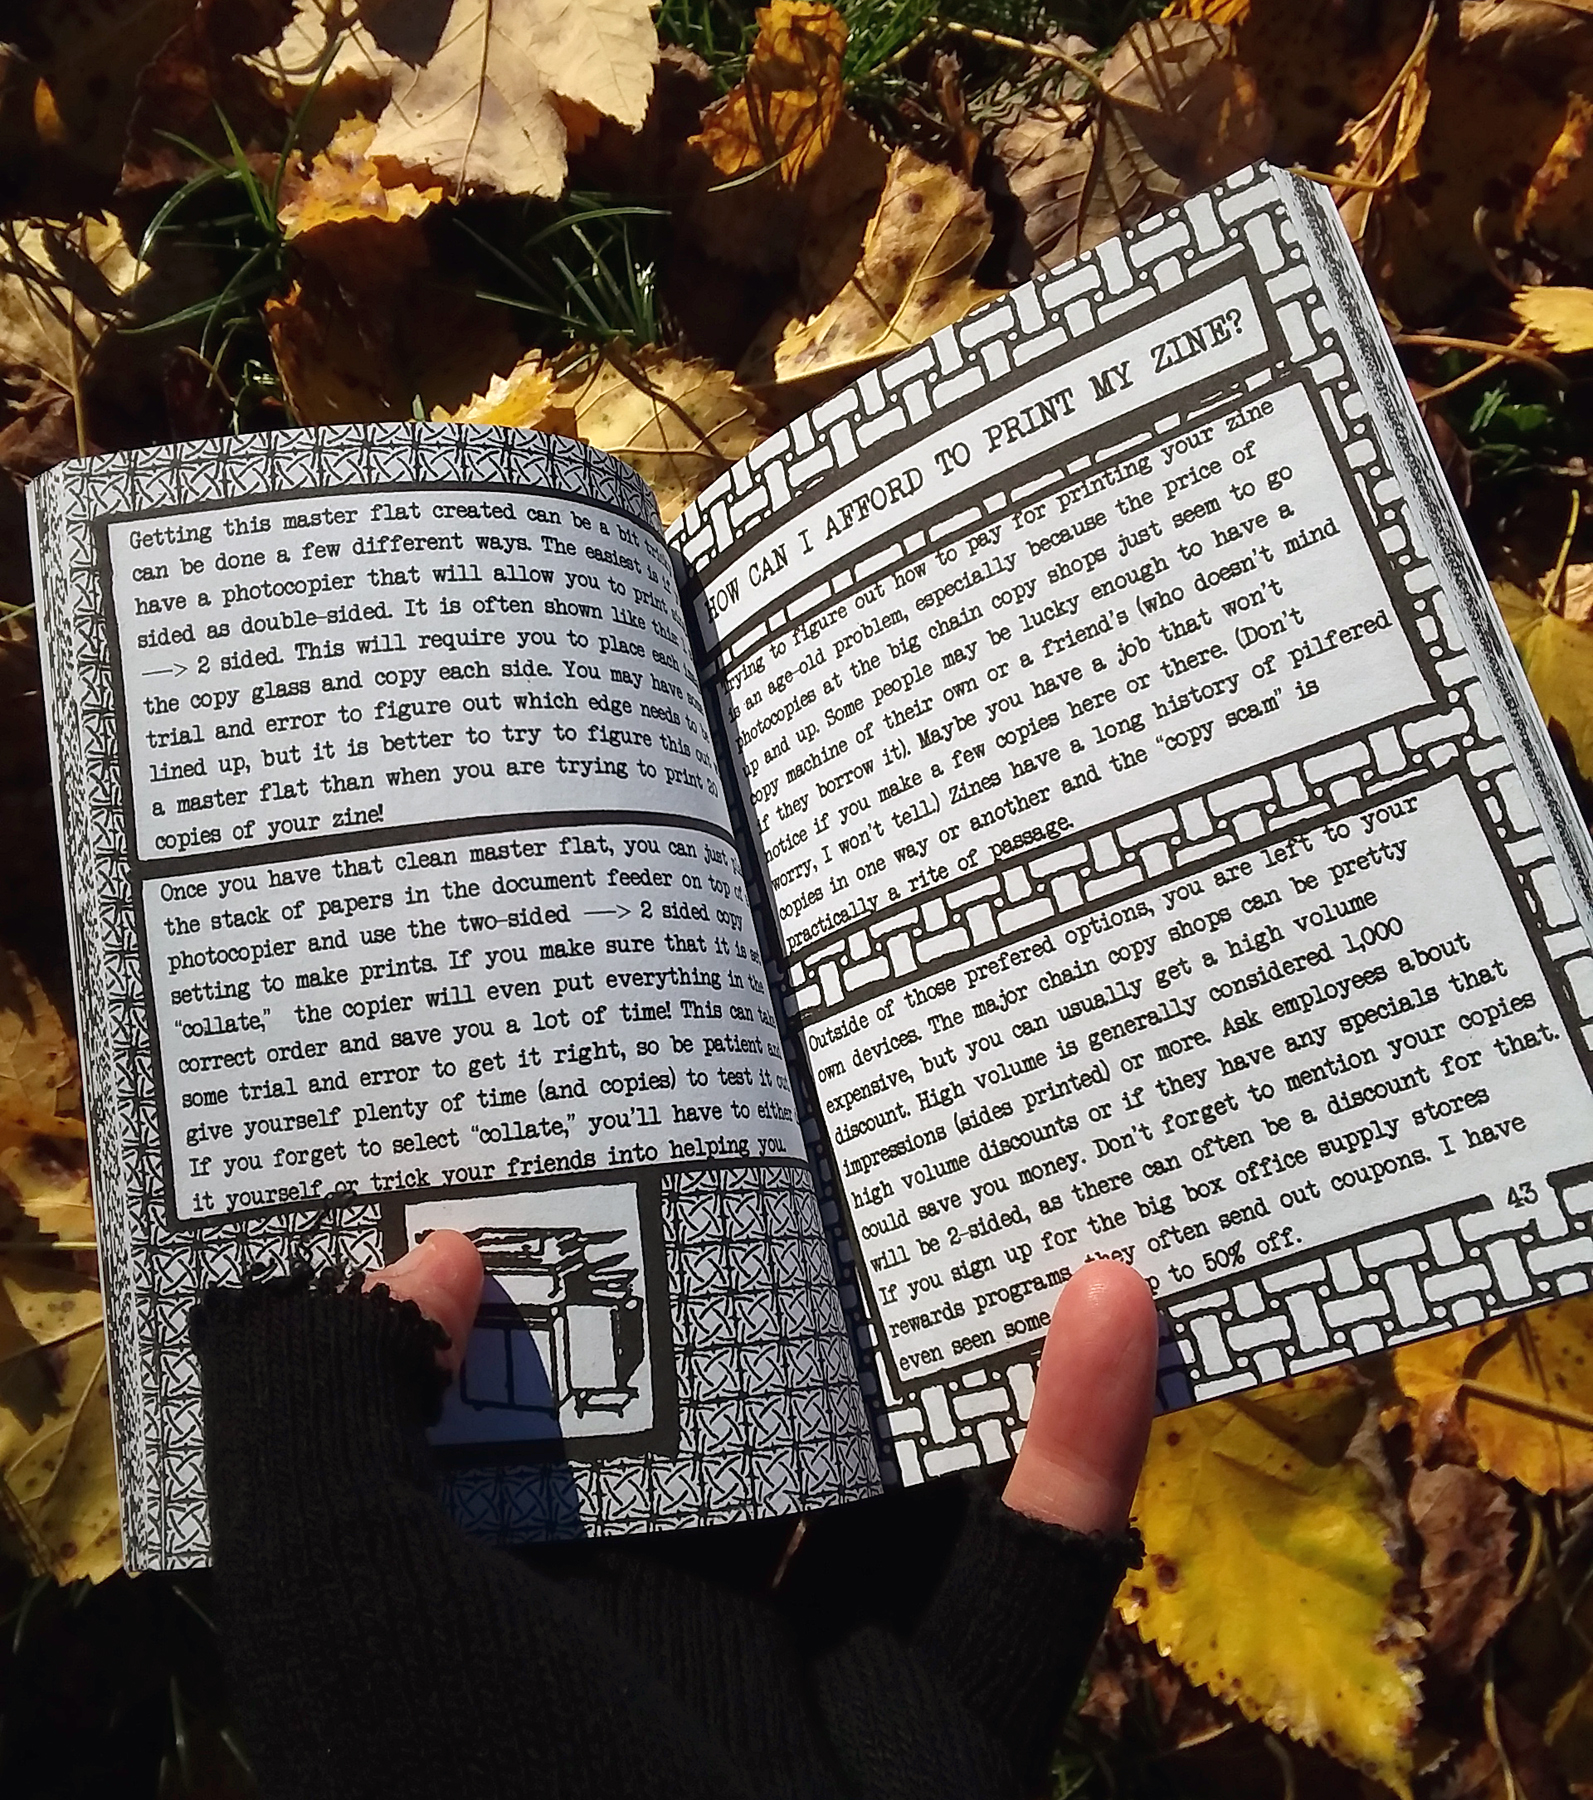 Getting this master flat created can be a bit
can be done a few different ways. The easiest is if
have a photocopier that will allow you to print
sided as double-sided. It is often shown like this
—> 2 sided. This will require you to place each
the copy glass and copy each side. You may have
trial and error to figure out which edge needs to be
lined up, but it is better to try to figure this out
a master flat than when you are trying to print 20
copies of your zine!
Once you have that clean master flat, you can just
the stack of papers in the document feeder on top of
photocopier and use the two-sided —> 2 sided copy
setting to make prints. If you make sure that it is
"collate," the copier will even put everything in the
correct order and save you a lot of time! This can
some trial and error to get it right, so be patient and
give yourself plenty of time (and copies) to test it out
If you forget to select "collate," you'll have to either
it yourself or trick your friends into helping you.
HOW CAN I AFFORD TO PRINT MY ZINE?
Trying to figure out how to pay for printing your zine
is an age-old problem, especially because the price of
photocopies at the big chain copy shops just seem to go
up and up. Some people may be lucky enough to have a
copy machine of their own or a friend's (who doesn't mind
if they borrow it). Maybe you have a job that won't
notice if you make a few copies here or there. (Don't
worry, I won't tell.) Zines have a long history of pilfered
copies in one way or another and the "copy scam" is
practically a rite of passage.
Outside of those prefered options, you are left to your
own devices. The major chain copy shops can be pretty
expensive, but you can usually get a high volume
discount. High volume is generally considered 1,000
impressions (sides printed) or more. Ask employees about
high volume discounts or if they have any specials that
could save you money. Don't forget to mention your copies
will be 2-sided, as there can often be a discount for that.
If you sign up for the big box office supply stores
rewards programs they often send out coupons. I have
even seen some to 50% off.
43